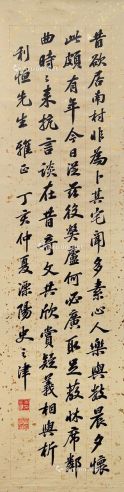 昔欲居南村非為卜其宅聞多素心人樂與數晨夕懷
此頗有年今日從茲役敝廬何必廣取足蔽牀席鄰
曲時〻來抗言談在昔奇文共欣賞疑義相與析
利恒先生雅正 丁亥仲夏溧陽史之津